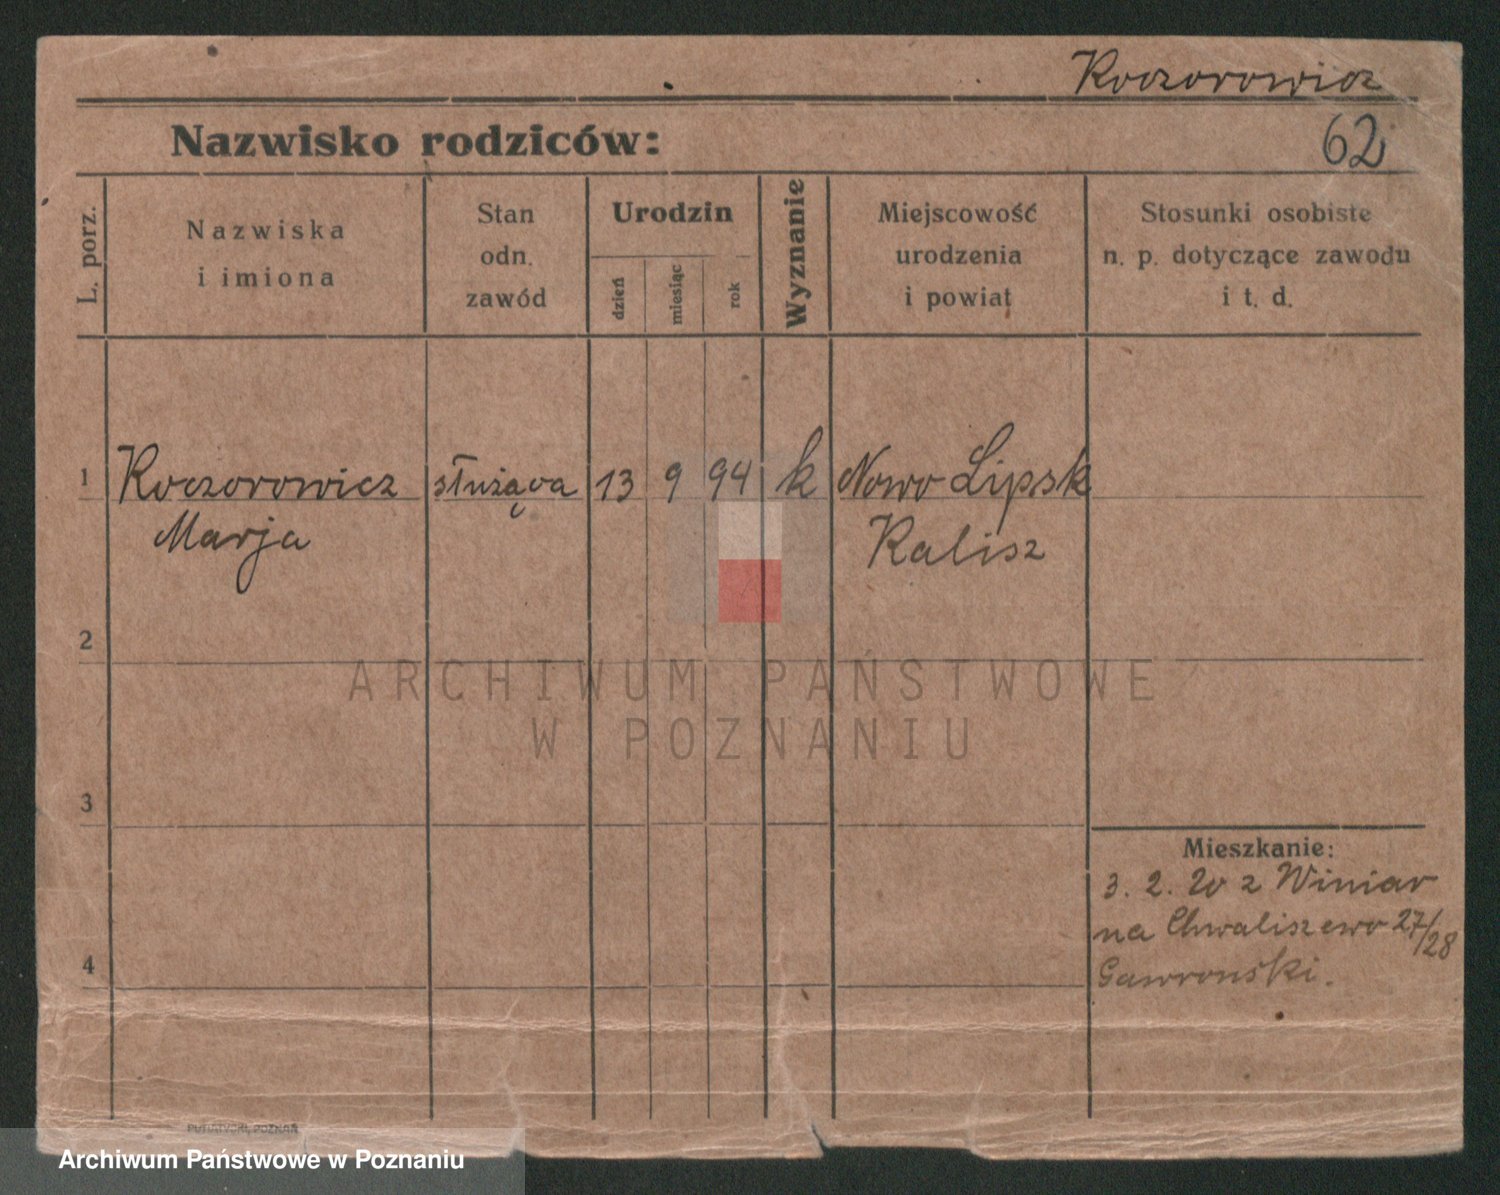 Koczorowicz
Nazwisko rodziców:
62
L. porz.
Nazwiska
i imiona
Stan
odn.
zawód
Urodzin
dzień
miesiąc
rok
Wyznanie
Miejscowość
urodzenia
i powiat
Stosunki osobiste
n. p. dotyczące zawodu
i t. d.
1 Koczorowicz służąca 13 9 94 k Nowo Lipsk
Marja Kalisz
2
ARCHIWUM PAŃSTWOWE
W POZNANIU
3
Mieszkanie:
3. 2. 20 z Winiar
na Chwaliszewo 27/28
4
Gawroński.
PUTIATYCKI, POZNAŃ
Archiwum Państwowe w Poznaniu